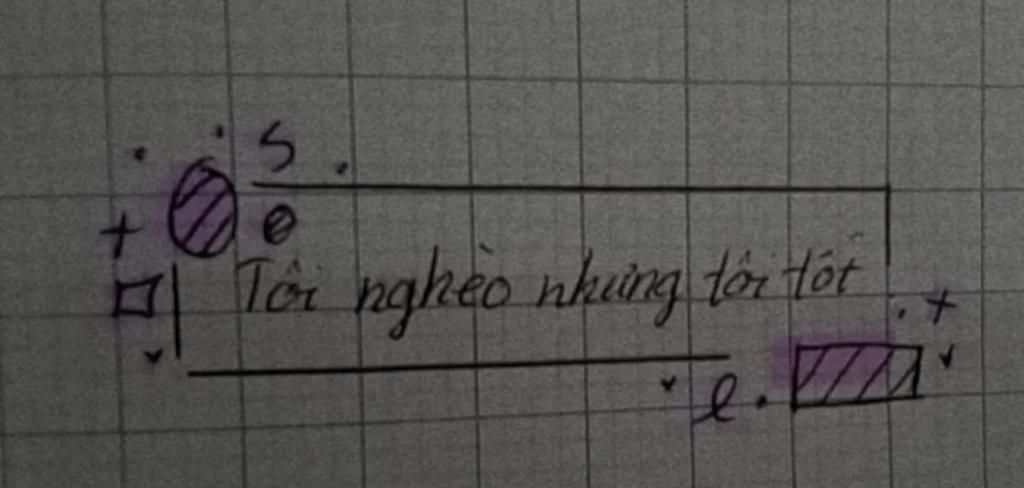 S
e
Tôi nghèo nhưng tôi tốt
e